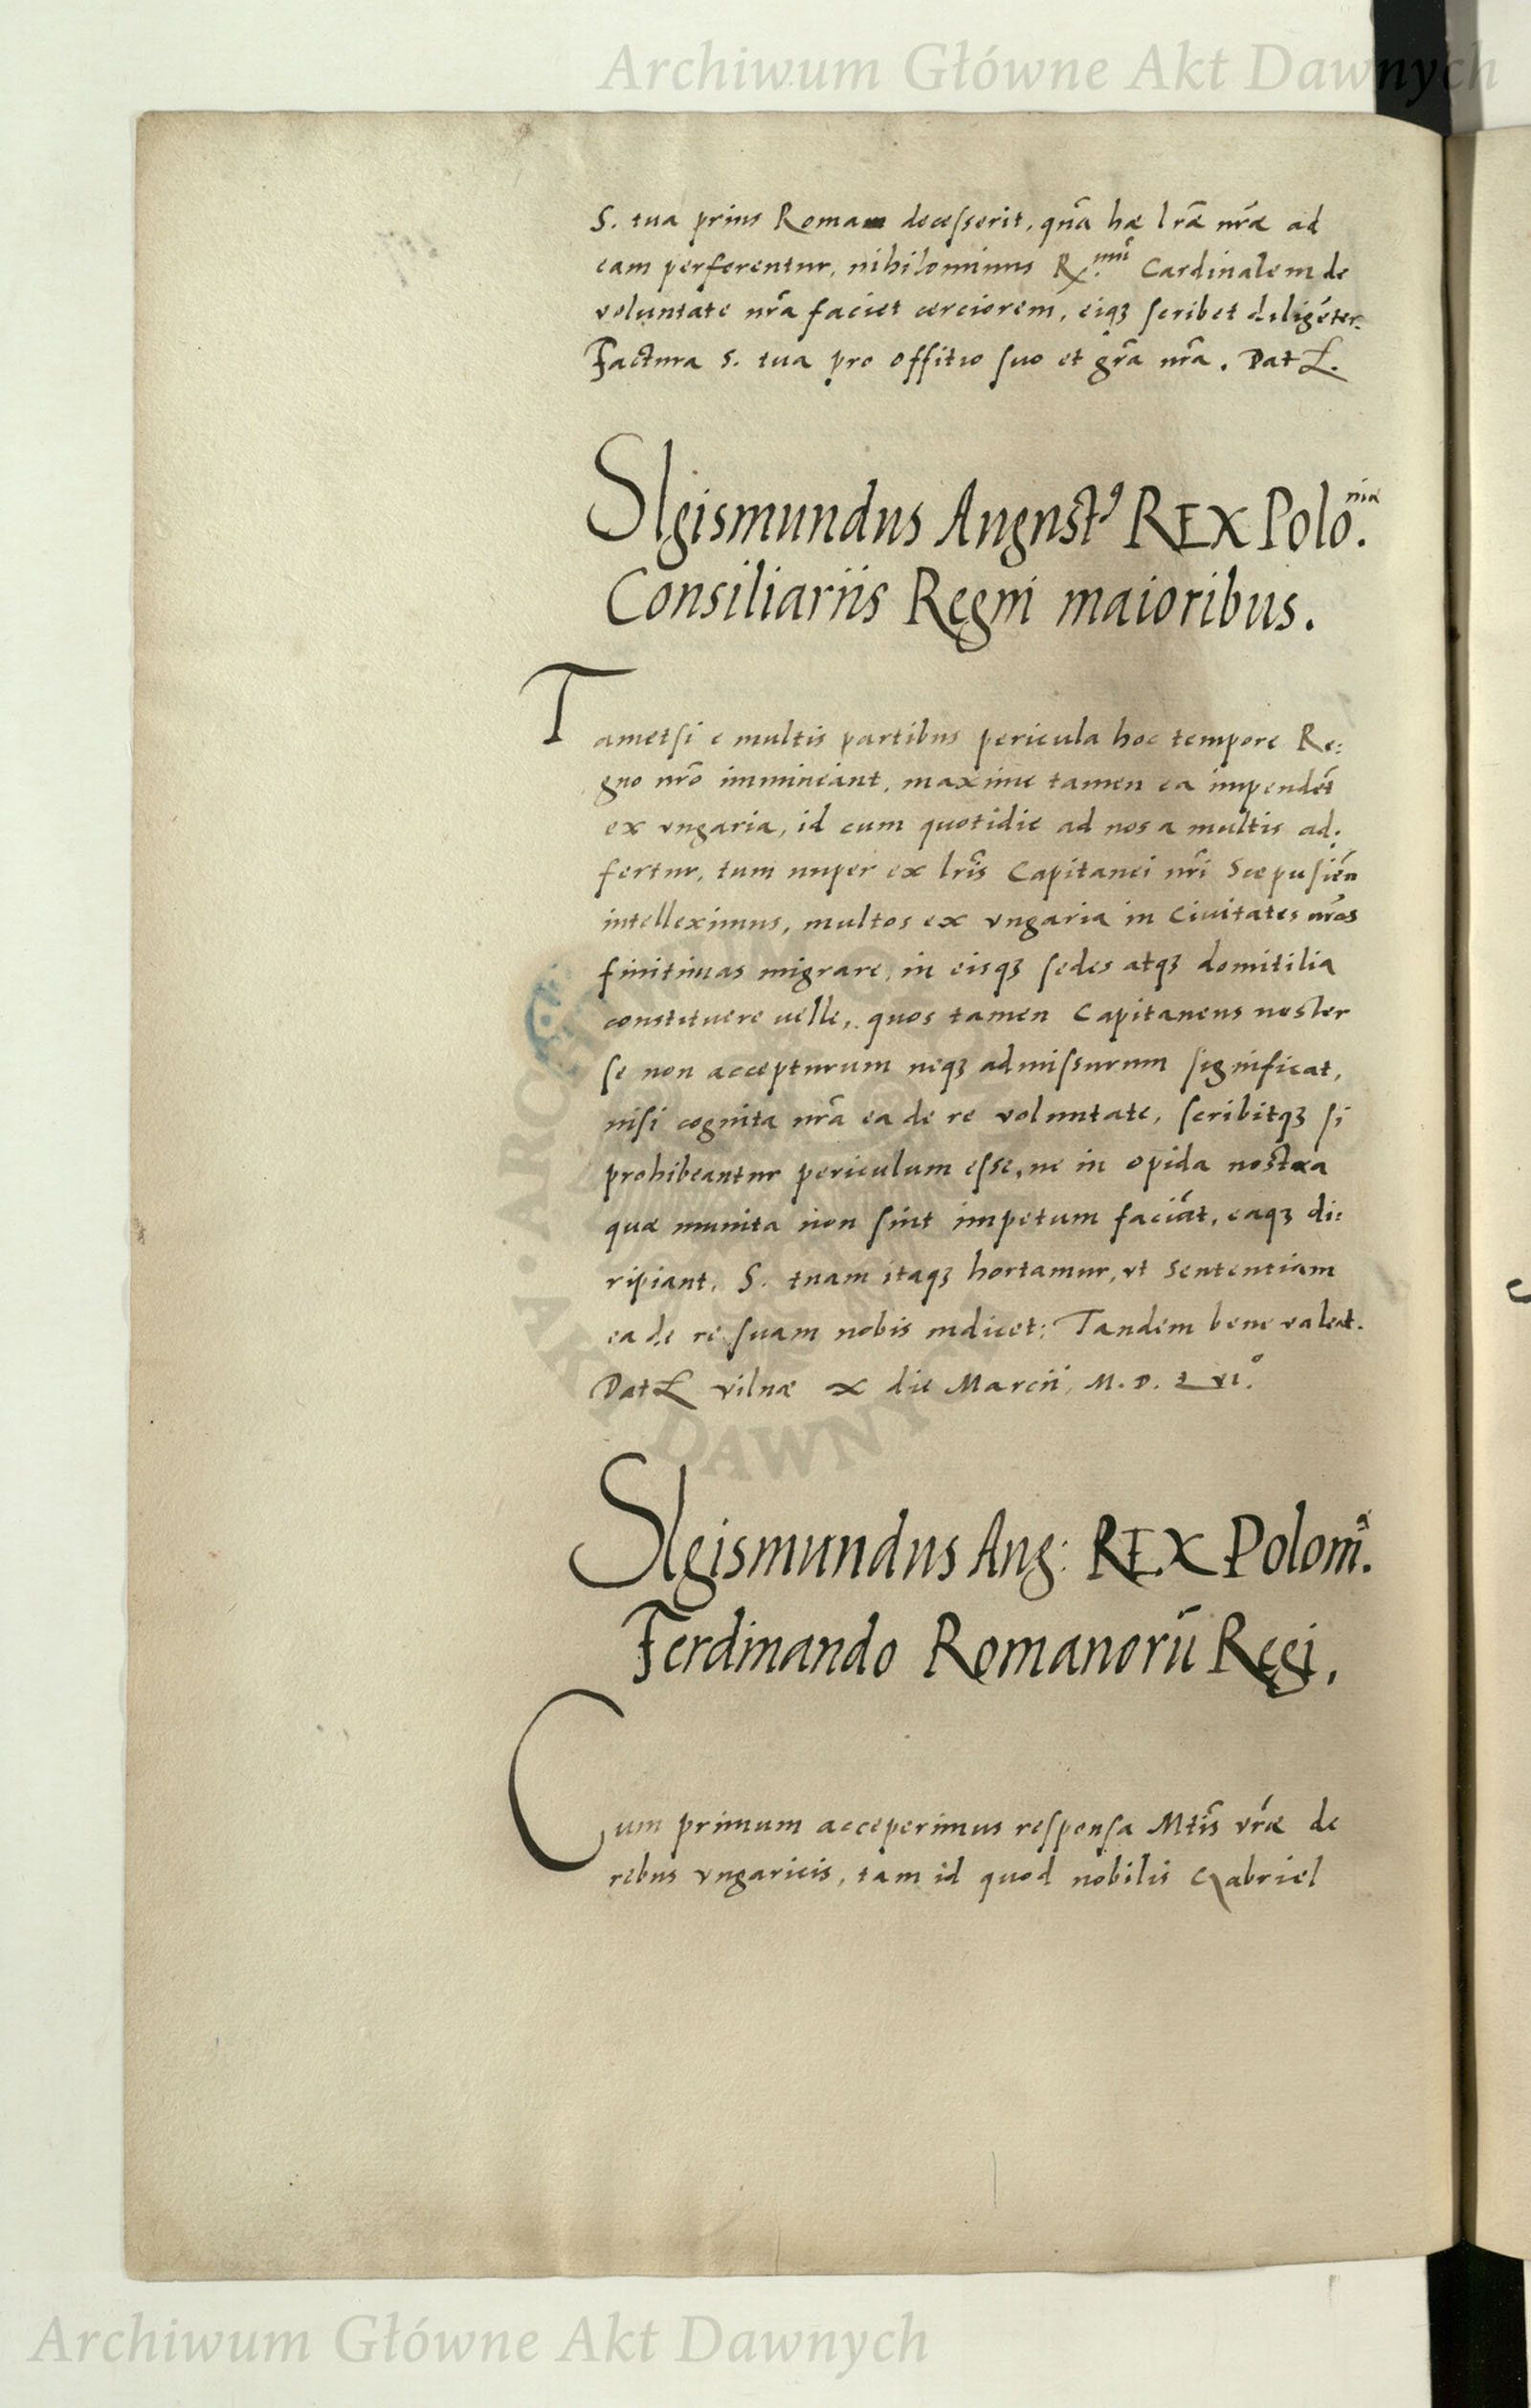 Archiwum Główne Akt Dawnych
S. tua prius Romam decesserit, qña hæ lræ nræ ad
eam perferentur, nihilominus Rx.mũ Cardinalem de
voluntate nrã faciet cerciorem, eiqȝ scribet diligẽter.
Factura S. tua pro offitio suo et grã nrã. Dat
SIgismundus August9 REX Polo.niæ
Consiliariis Regni maioribus.
Tametsi e multis partibus pericula hoc tempore Re:
gno nrõ immineant, maxime tamen ea impendẽt
ex vngaria, id cum quotidie ad nos a multis ad.
fertur, tum nuper ex lrĩs Capitanei nrĩ Scepusieñ
intelleximus, multos ex vngaria in Ciuitates nrãs
finitimas migrare, in eisqȝ sedes atqȝ domitilia
constituere uelle, quos tamen Capitaneus noster
se non accepturum neqȝ admissurum significat,
nisi cognita nrã ea de re voluntate, scribitqȝ si
prohibeantur periculum esse, ne in opida nostra
quæ munita non sint impetum faciãt, eaqȝ di:
ripiant, S. tuam itaqȝ hortamur, vt sententiam
ea de re suam nobis indicet: Tandem bene valeat.
Dat vilnæ x die Marcii, M. D. L VI.o
SIgismundus Aug: REX Polonĩæ.
Ferdinando Romanorũ Regi,
Cum primum acceperimus responsa Mtĩs vræ de
rebus vngaricis, tam id quod nobilis Gabriel
Archiwum Główne Akt Dawnych